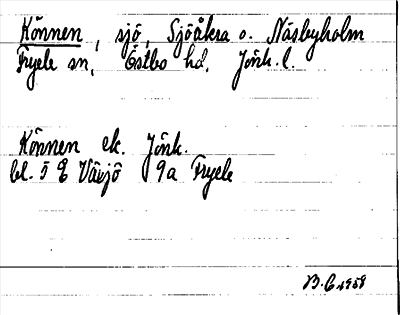 Können, sjö, Sjöåkra o. Näsbyholm
Fryele sn, Östbo hd. Jönk. l.
Können ek. Jönk.
bl. 5 E Växjö 9a Fryele
B.E. 1958